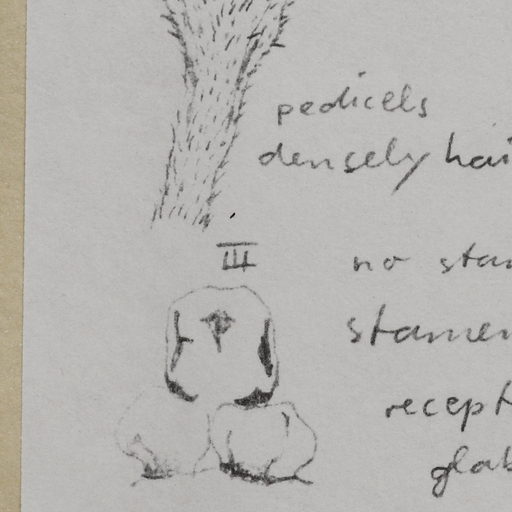 pedicels
densely hai
III
no sta
stamen
recept
glab